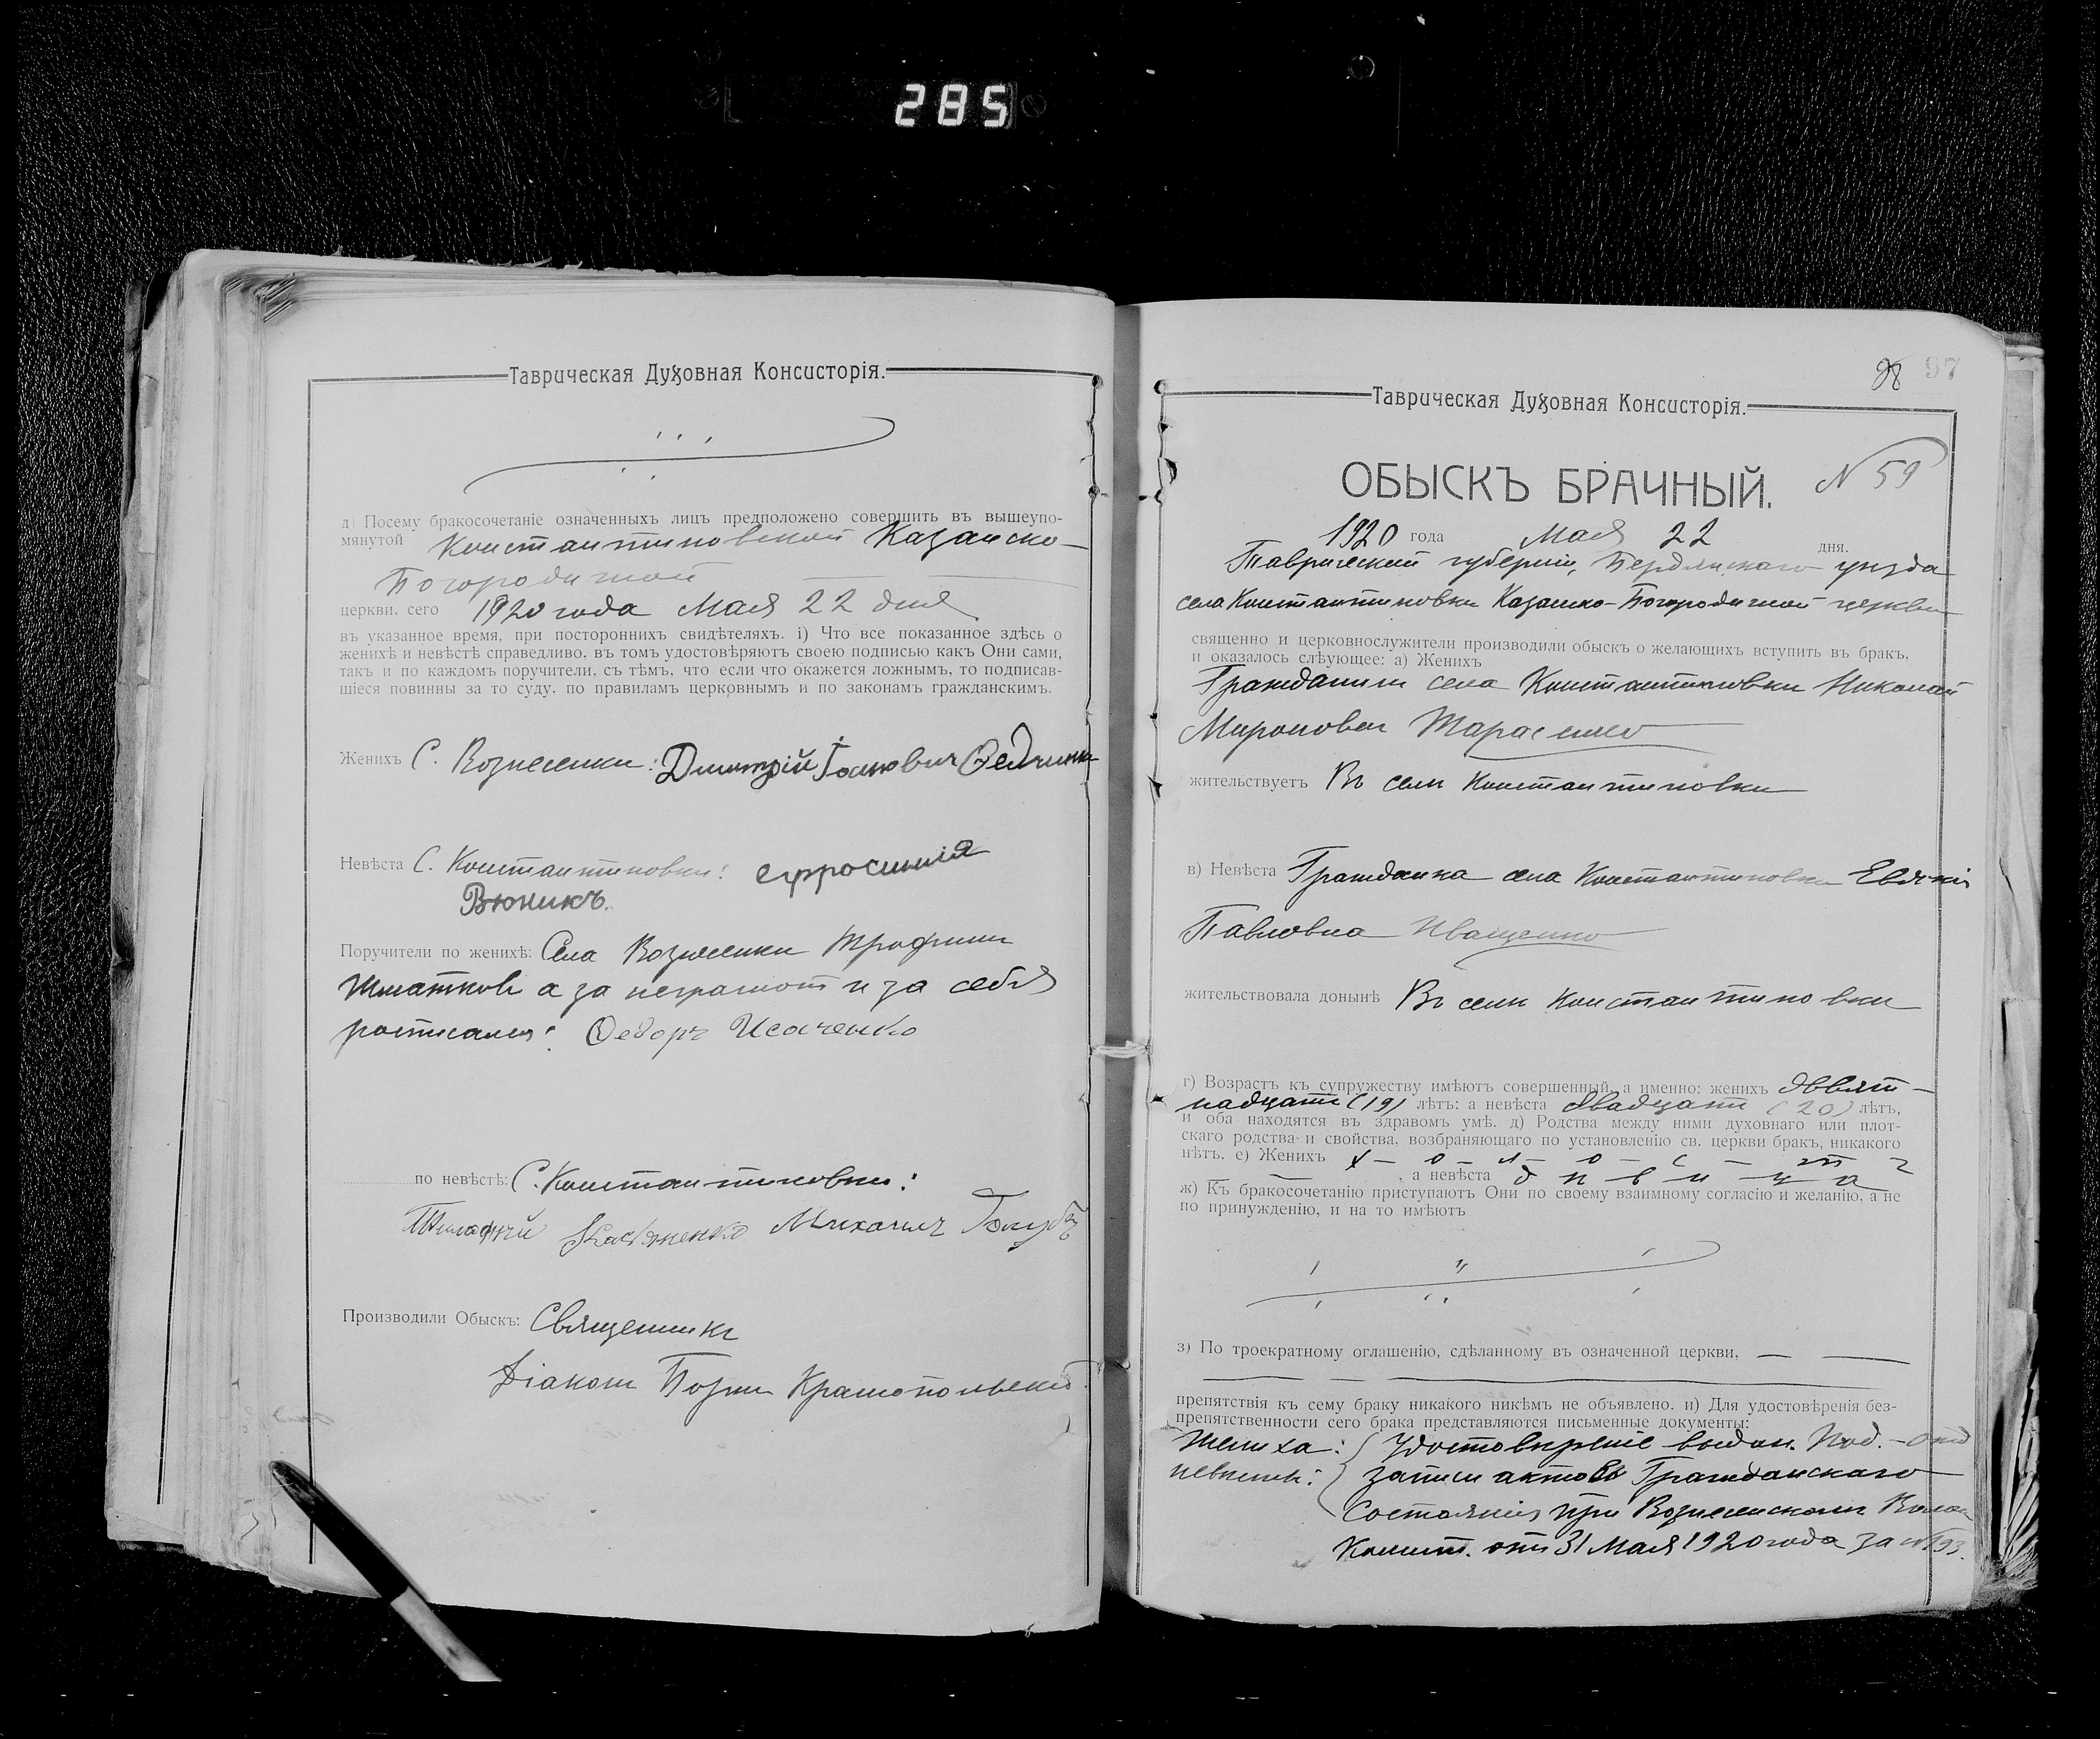 285
Таврическая Духовная Консисторія.
д) Посему бракосочетаніе означенныхъ лицъ предположено совершить въ вышеупо-
мянутой Константиновской Казанско-
Богородичной
церкви. сего 1920 года Мая 22 дня
въ указанное время, при постороннихъ свидѣтеляхъ. і) Что все показанное здѣсь о
женихѣ и невѣстѣ справедливо, въ томъ удостовѣряютъ своею подписью какъ Они сами,
такъ и по каждомъ поручители, съ тѣмъ, что если что окажется ложнымъ, то подписав-
шіеся повинны за то суду, по правиламъ церковнымъ и по законамъ гражданскимъ.
Женихъ С. Вознесенки: Дмитрій
Невѣста С. Константиновки: Ефросинія
Вюникъ.
Поручители по женихѣ: Села Вознесенки Трофим
а за неграмот и за себя
росписался: Ѳедоръ Исаченко
по невѣстѣ: С. Константиновки:
Михаилъ
Производили Обыскъ: Священникъ
Діаконъ
98 97
Таврическая Духовная Консисторія.
ОБЫСКЪ БРАЧНЫЙ. N 59
1920 года Мая 22 дня.
Таврической губерніи, Бердянскаго уѣзда
села Константиновки Казанско-Богородичной церкви
священно и церковнослужители производили обыскъ о желающихъ вступить въ бракъ,
и оказалось слѣующее: а) Женихъ
Гражданин села Константиновки Николай
Миронович Тарасенко
жительствуетъ Въ селѣ Константиновки
в) Невѣста Гражданка села Константиновки
Павловна Иващенко
жительствовала донынѣ Въ селѣ Константиновки
г) Возрастъ къ супружеству имѣютъ совершенный, а именно: женихъ девят-
надцати (19) лѣтъ: а невѣста двадцати (20) лѣтъ,
и оба находятся въ здравомъ умѣ. д) Родства между ними духовнаго или плот-
скаго родства и свойства, возбраняющаго по установленію св. церкви бракъ, никакого
нѣтъ. е) Женихъ х - о - л - о - с - т - ъ
, а невѣста д ѣ в и ц а
ж) Къ бракосочетанію приступаютъ Они по своему взаимному согласію и желанію, а не
по принужденію, и на то имѣютъ
з) По троекратному оглашенію, сдѣланному въ означенной церкви,
препятствія къ сему браку никакого никѣмъ не объявлено. и) Для удостовѣренія без-
препятственности сего брака представляются письменные документы:
Жениха: Удостовѣреніе выдан. Под.
невѣсты: записи актовъ Гражданскаго
Состоянія при Вознесенскомъ
Комит. отъ 31 Мая 1920 года за №193.